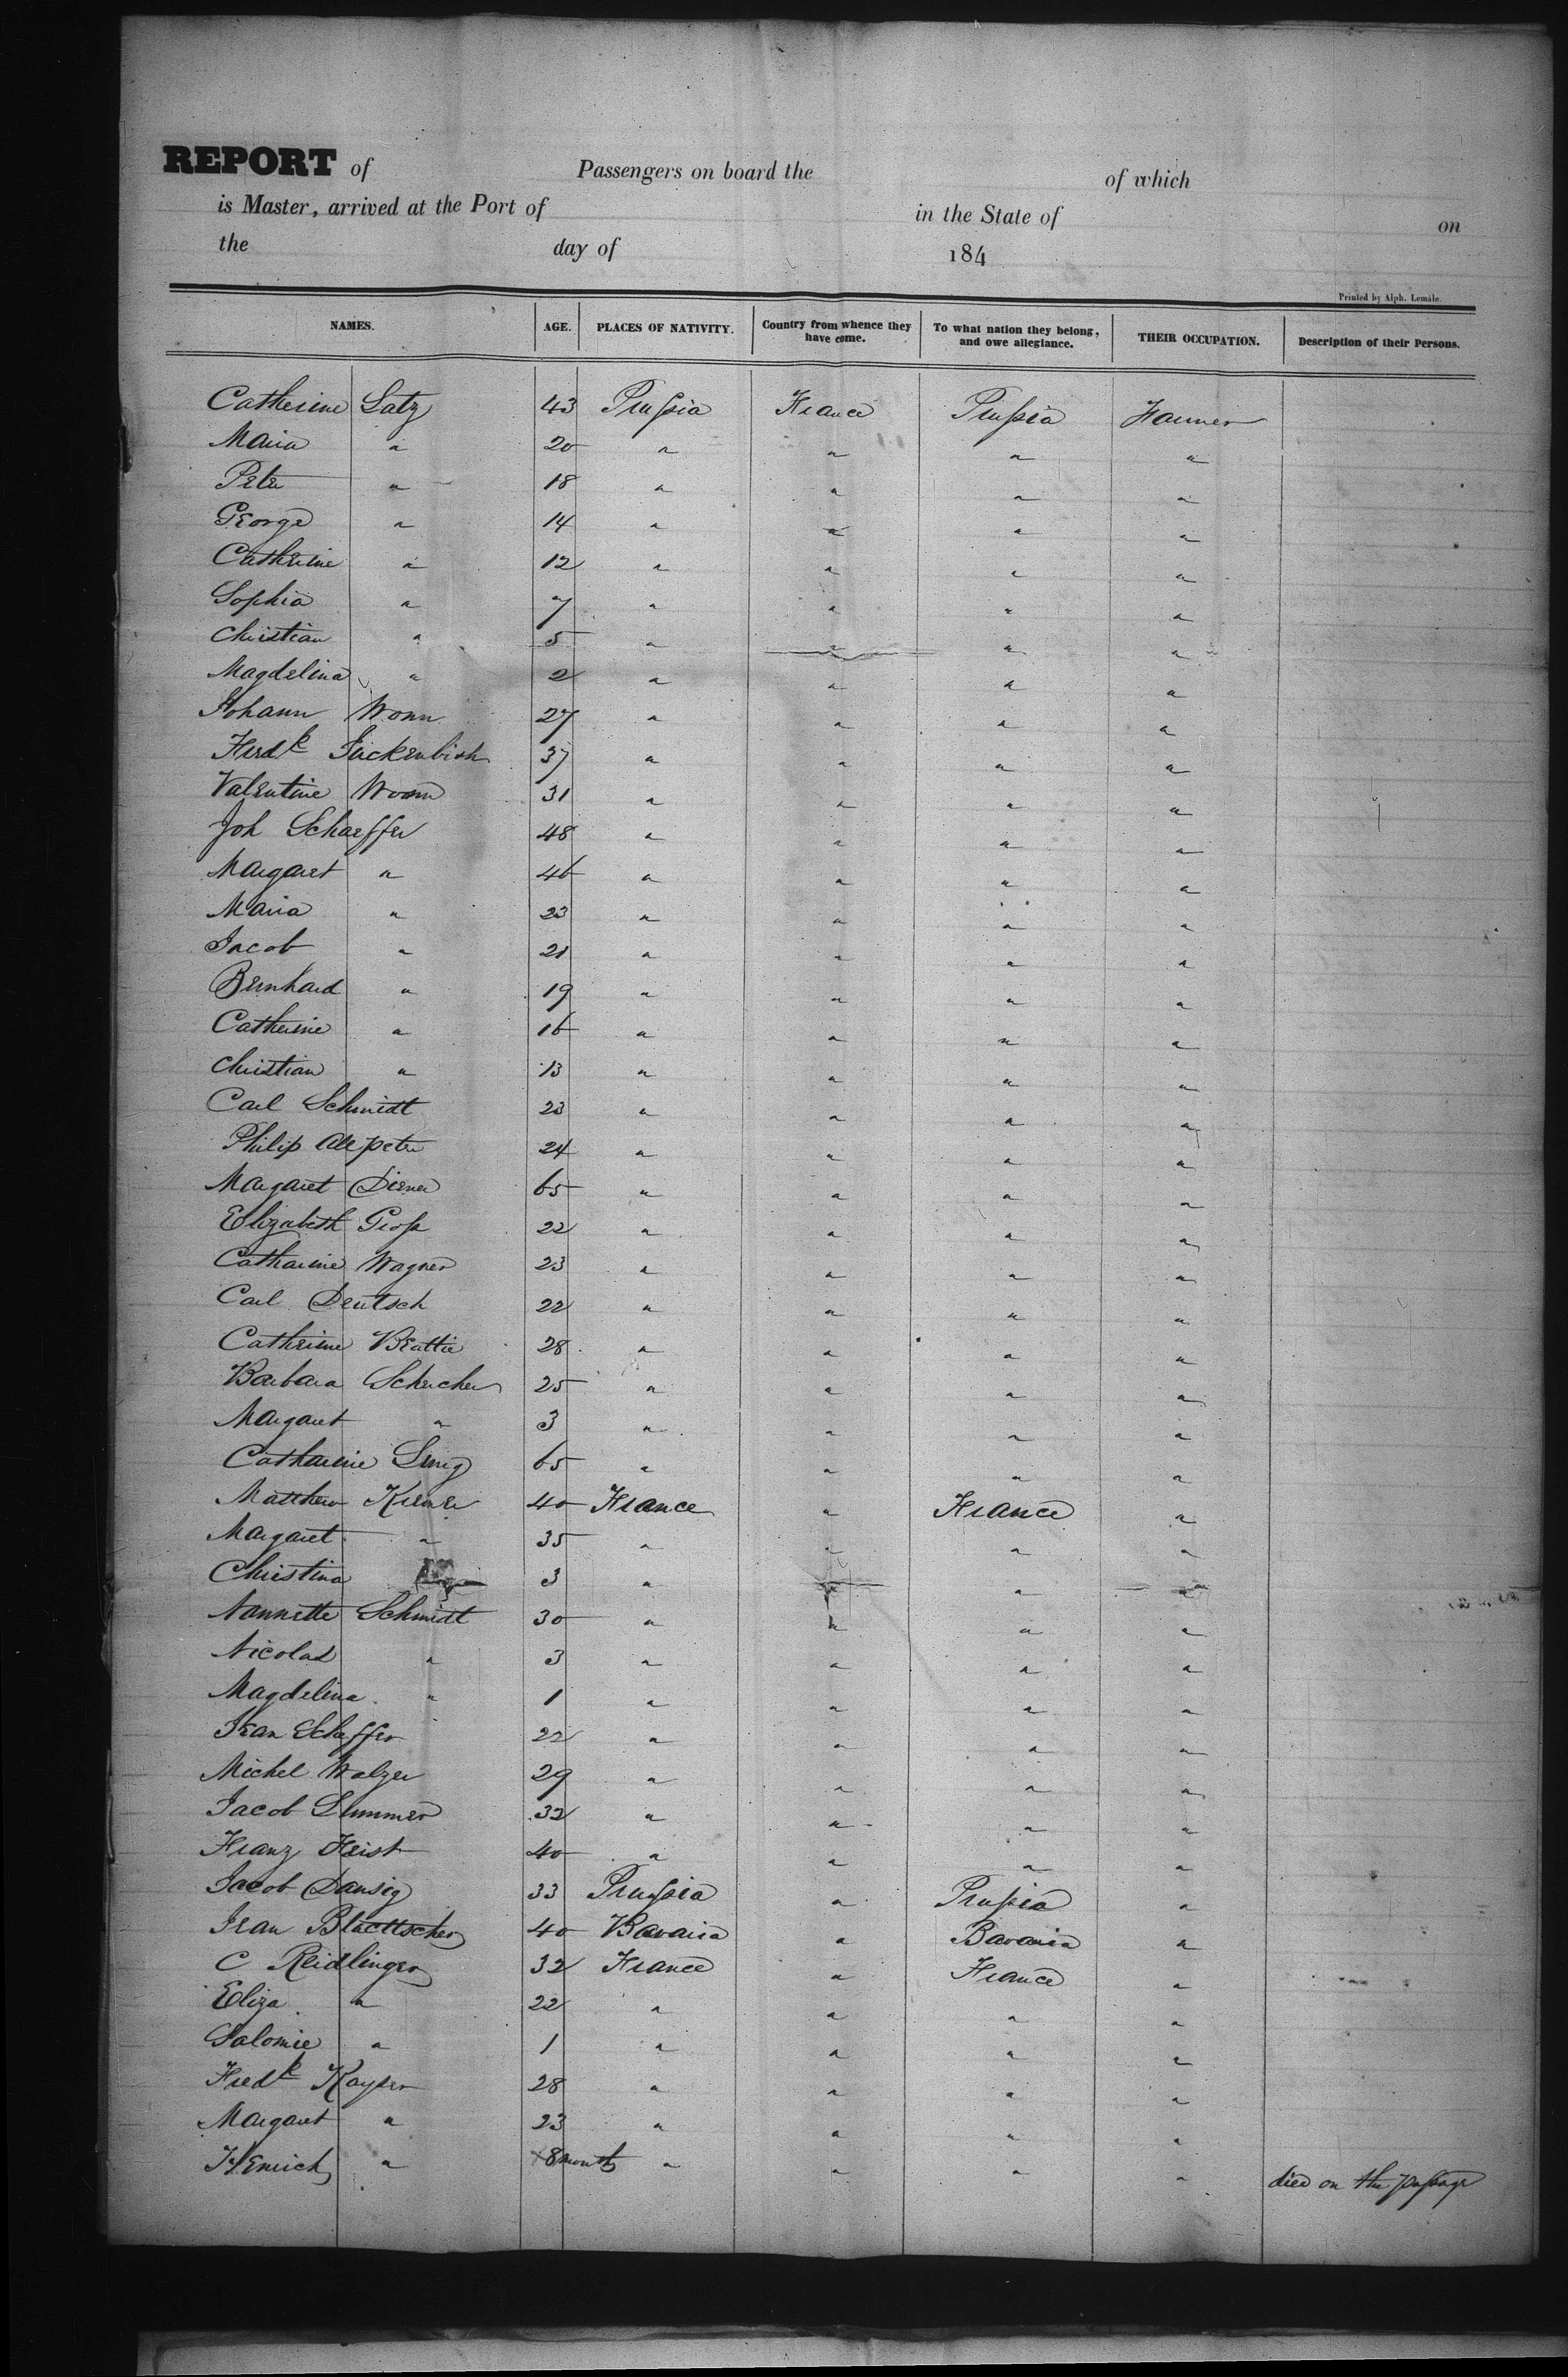 REPORT of Passengers on board the of which
is Master, arrived at the Port of in the State of on
the day of 184
Printed by Alph. Lemâle.
NAMES. AGE. PLACES OF NATIVITY. Country from whence they have come. To what nation they belong, and owe allegiance. THEIR OCCUPATION. Description of their Persons.
Catherine Latz 43 Prussia France Prussia Farmer
Maria " 20 " " " "
Peter " 18 " " " "
George " 14 " " " "
Catherine " 12 " " " "
Sophia " 7 " " " "
Christian " 5 " " " "
Magdelina " 2 " " " "
Johann Wonn 27 " " " "
Ferdk 37 " " " "
Valentine Wonn 31 " " " "
Joh Schaeffer 48 " " " "
Margaret " 46 " " " "
Maria " 23 " " " "
Jacob " 21 " " " "
Bernhard " 19 " " " "
Catherine " 16 " " " "
Christian " 13 " " " "
Carl Schmidt 23 " " " "
Philip Allpeter 24 " " " "
Margaret Diener 65 " " " "
Elizabeth Gross 22 " " " "
Catharine Wagner 23 " " " "
Carl Deutsch 22 " " " "
Catherine Beattie 28 " " " "
Barbara Schercher 25 " " " "
Margaret " 3 " " " "
Catharine 65 " " " "
Matthew 40 France " France "
Margaret " 35 " " " "
Christina 3 " " " "
Nannette Schmidt 30 " " " "
Nicolas " 3 " " " "
Magdelina " 1 " " " "
Jean Scheffer 22 " " " "
Michel Walzer 29 " " " "
Jacob Summer 32 " " " "
Franz Heist 40 " " " "
Jacob Dansig 33 Prussia " Prussia "
Jean Blaettscher 40 Bavaria " Bavaria "
C Reidlinger 32 France " France "
Eliza " 22 " " " "
Salomie " 1 " " " "
Fredk Kayser 28 " " " "
Margaret " 23 " " " "
Henrich " 8 months " " " " died on the passage